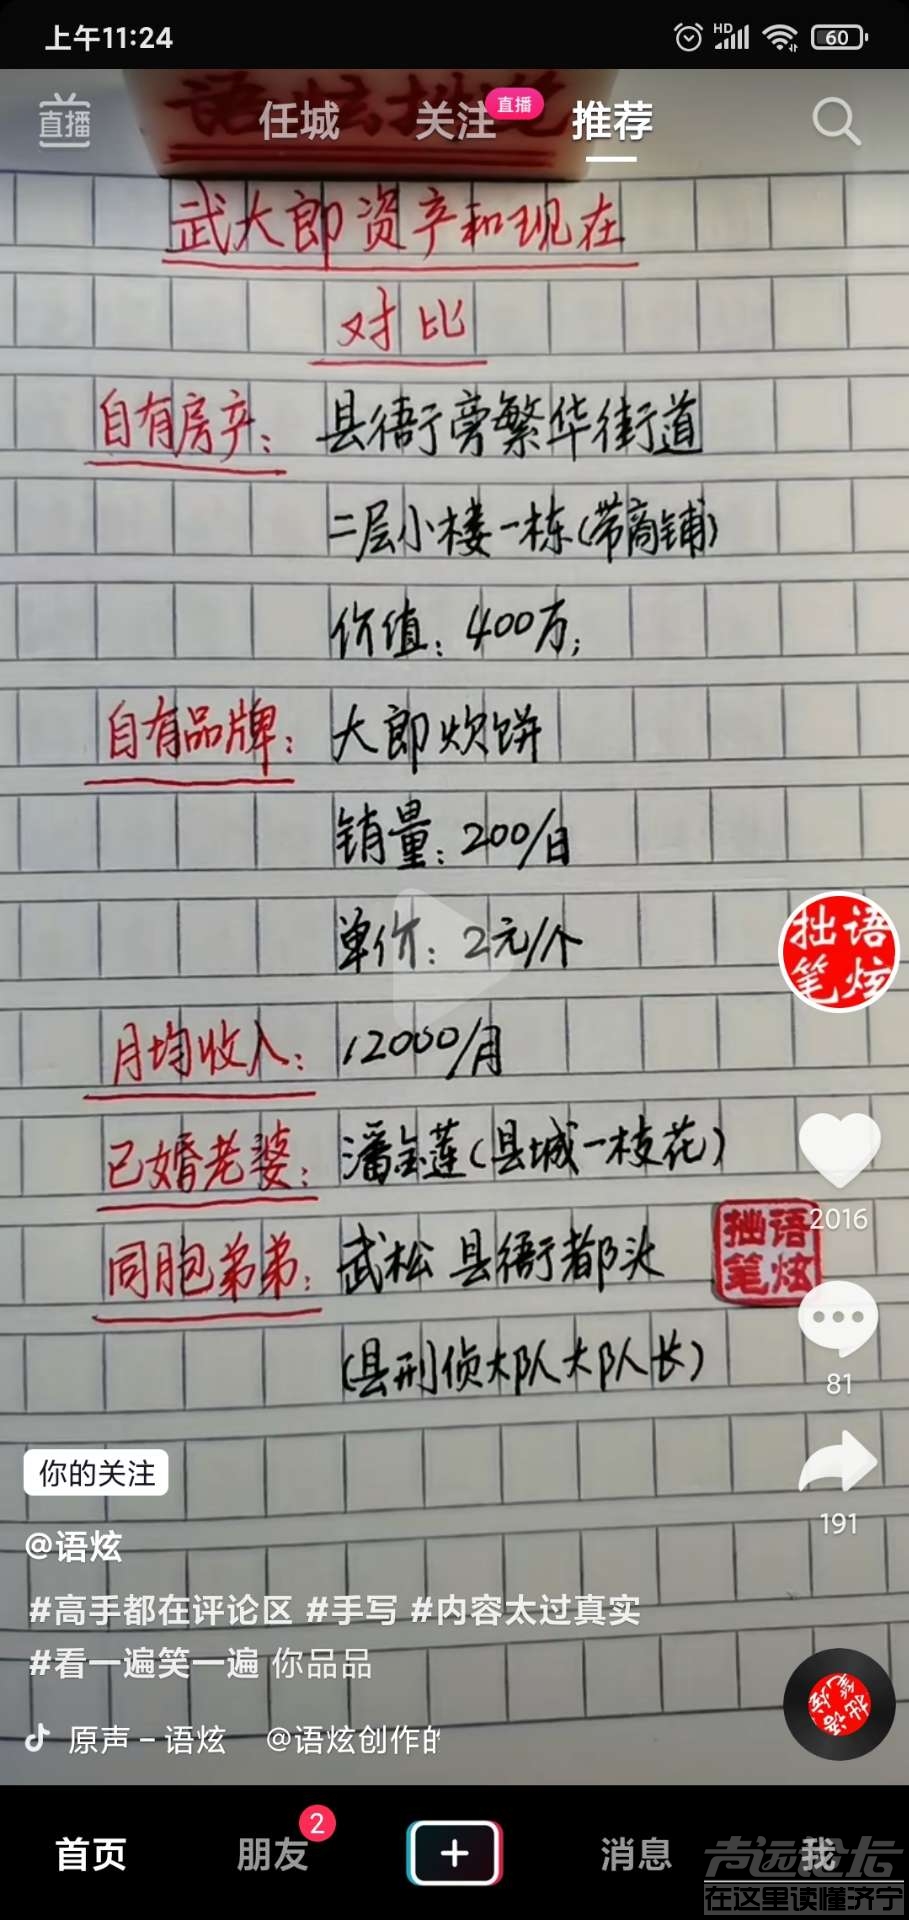 上午11:24
HD
60
直播
任城
关注
直播
推荐
语炫拙笔
武大郎资产和现在
对比
自有房产: 县衙旁繁华街道
二层小楼一栋(带商铺)
价值: 400万;
自有品牌: 大郎炊饼
销量: 200/日
单价: 2元/个
月均收入: 12000/月
已婚老婆: 潘金莲(县城一枝花)
同胞弟弟: 武松 县衙都头
(县刑侦大队大队长)
拙语
笔炫
拙语
笔炫
2016
81
191
你的关注
@语炫
#高手都在评论区 #手写 #内容太过真实
#看一遍笑一遍 你品品
原声 – 语炫 @语炫创作的
首页
朋友
2
消息
我
声远论坛
在这里读懂济宁